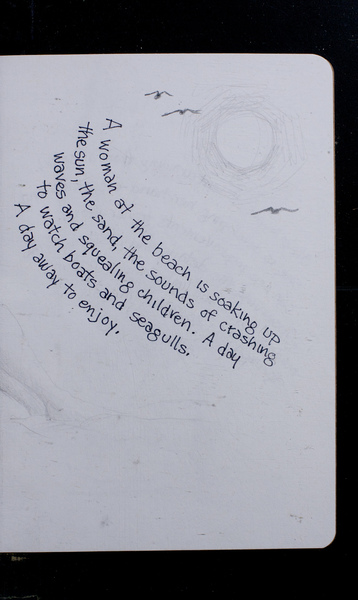 A woman at the beach is soaking up
the sun, the sand, the sounds of crashing
waves and squealing children. A day
to watch boats and seagulls.
A day away to enjoy.